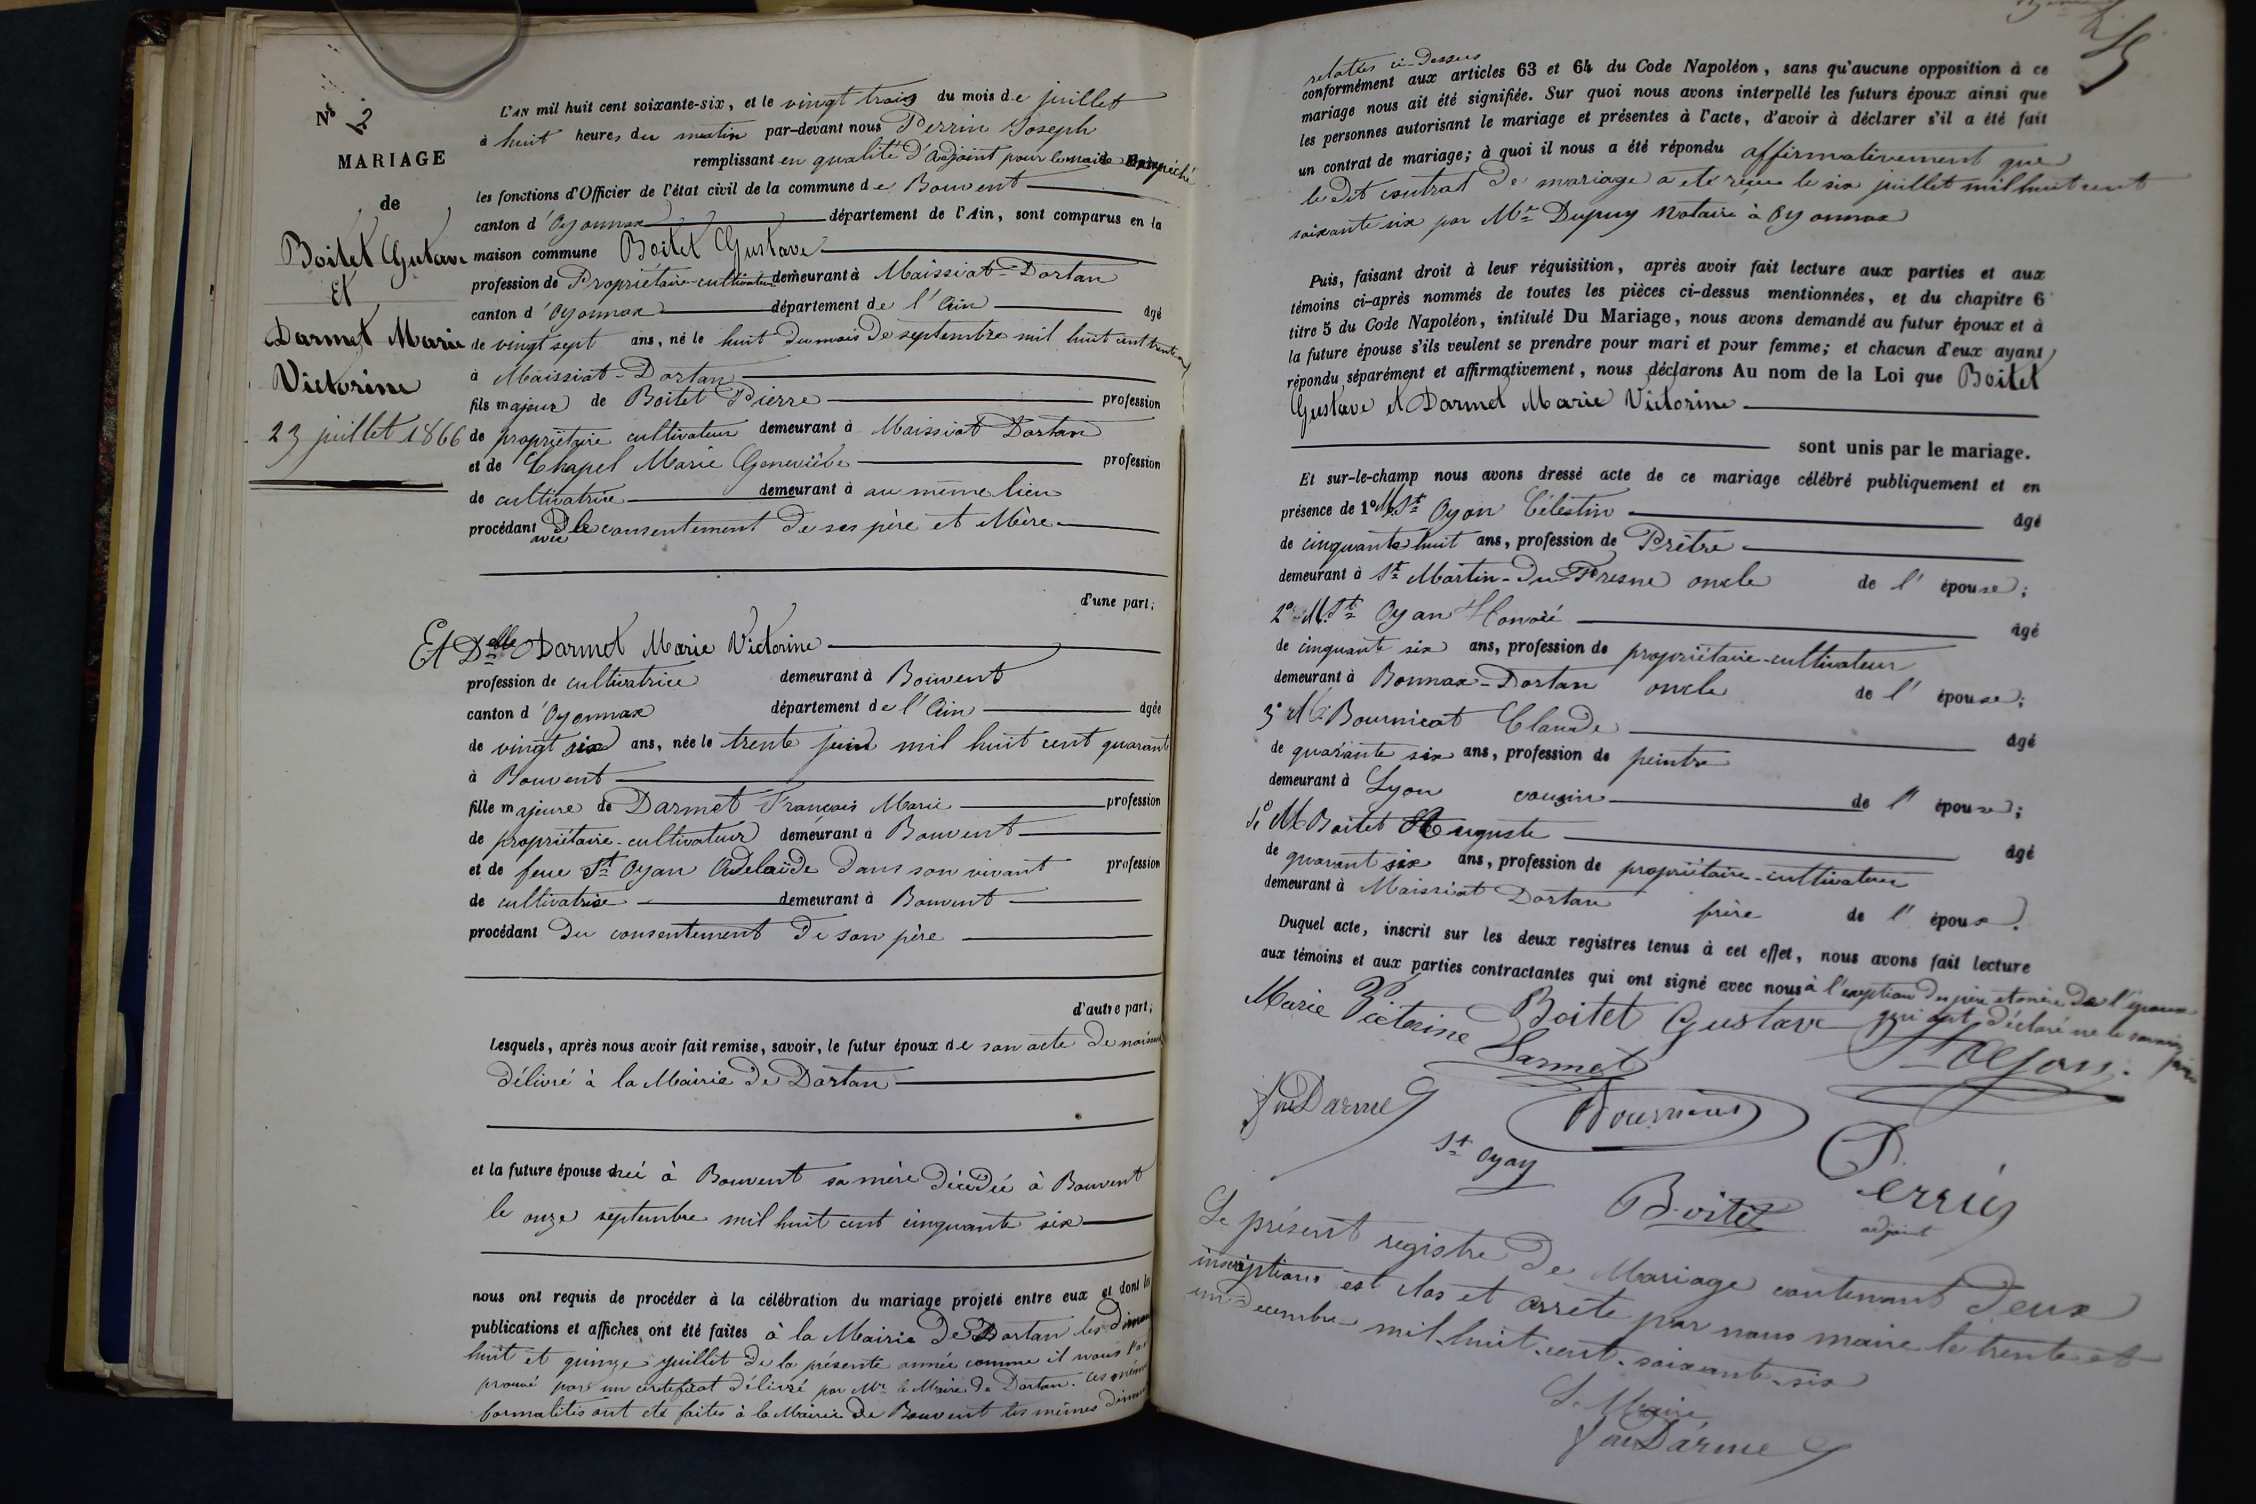 N° 2
MARIAGE
de
Boitet Gustave
Et
Darmet Marie
Victorine
23 juillet 1866
L'AN mil huit cent soixante-six, et le vingt trois du mois de juillet
à huit heures du matin par-devant nous Perrin Joseph
remplissant en qualité d'adjoint pour le maire Empêché
les fonctions d'Officier de l'état civil de la commune de Bouvent
canton d'Oyonnax département de l'Ain, sont comparus en la
maison commune Boitet Gustave
profession de Propriétaire-cultivateur demeurant à Maissiat-Dortan
canton d'Oyonnax département de l'Ain âgé
de vingt sept ans, né le huit du mois de septembre mil huit cent
à Maissiat-Dortan
fils majeur de Boitet Pierre profession
de propriétaire cultivateur demeurant à Maissiat Dortan
et de Chapel Marie Geneviève profession
de cultivatrice demeurant à au même lieu
procédant avec le consentement de ses père et Mère
d'une part;
Et Dlle Darmet Marie Victorine
profession de cultivatrice demeurant à Bouvent
canton d'Oyonnax département de l'Ain âgée
de vingt six ans, née le trente juin mil huit cent quarante
à Bouvent
fille majeure de Darmet François Marie profession
de propriétaire-cultivateur demeurant à Bouvent
et de feue St Oyan Adelaïde dans son vivant profession
de cultivatrice demeurant à Bouvent
procédant du consentement de son père
d'autre part;
Lesquels, après nous avoir fait remise, savoir, le futur époux de son acte de
délivré à la Mairie de Dortan
et la future épouse née à Bouvent sa mère décédée à Bouvent
le onze septembre mil huit cent cinquante six
nous ont requis de procéder à la célébration du mariage projeté entre eux et dont les
publications et affiches ont été faites à la Mairie de Dortan les
huit et quinze juillet de la présente année comme il nous l'a
prouvé par un certificat délivré par Mr le Maire de Dortan. Ces mêmes
formalités ont été faites à la Mairie de Bouvent les mêmes
relatés ci-dessus
conformément aux articles 63 et 64 du Code Napoléon, sans qu'aucune opposition à ce
mariage nous ait été signifiée. Sur quoi nous avons interpellé les futurs époux ainsi que
les personnes autorisant le mariage et présentes à l'acte, d'avoir à déclarer s'il a été fait
un contrat de mariage; à quoi il nous a été répondu affirmativement que
le dit contrat de mariage a été reçu le six juillet mil huit cent
soixante six par Mr Dupuy Notaire à Oyonnax
Puis, faisant droit à leur réquisition, après avoir fait lecture aux parties et aux
témoins ci-après nommés de toutes les pièces ci-dessus mentionnées, et du chapitre 6
titre 5 du Code Napoléon, intitulé Du Mariage, nous avons demandé au futur époux et à
la future épouse s'ils veulent se prendre pour mari et pour femme; et chacun d'eux ayant
répondu séparément et affirmativement, nous déclarons Au nom de la Loi que Boitet
Gustave et Darmet Marie Victorine
sont unis par le mariage.
Et sur-le-champ nous avons dressé acte de ce mariage célébré publiquement et en
présence de 1° M. St Oyan Célestin âgé
de cinquante huit ans, profession de Prêtre
demeurant à St Martin-du-Fresne oncle de l'épouse;
2° M. St Oyan Honoré âgé
de cinquante six ans, profession de propriétaire-cultivateur
demeurant à Bonnax-Dortan oncle de l'épouse;
3° M. Bournicat Claude âgé
de quarante six ans, profession de peintre
demeurant à Lyon cousin de l'épouse;
M Boitet Auguste âgé
de quarant six ans, profession de propriétaire-cultivateur
demeurant à Maissiat Dortan frère de l'époux.
Duquel acte, inscrit sur les deux registres tenus à cet effet, nous avons fait lecture
aux témoins et aux parties contractantes qui ont signé avec nous à l'exception des père et mère de l'époux
qui ont déclaré ne le savoir faire
Marie Victorine Boitet Gustave
Darmet St Oyan.
Darmet Bournicat
St Oyan
Boitet Perrin
adjoint
Le présent registre de Mariage contenant deux
inscriptions est clos et arrêté par nous maire le trente et
un decembre mil-huit-cent-soixante-six
Le Maire
Darmet